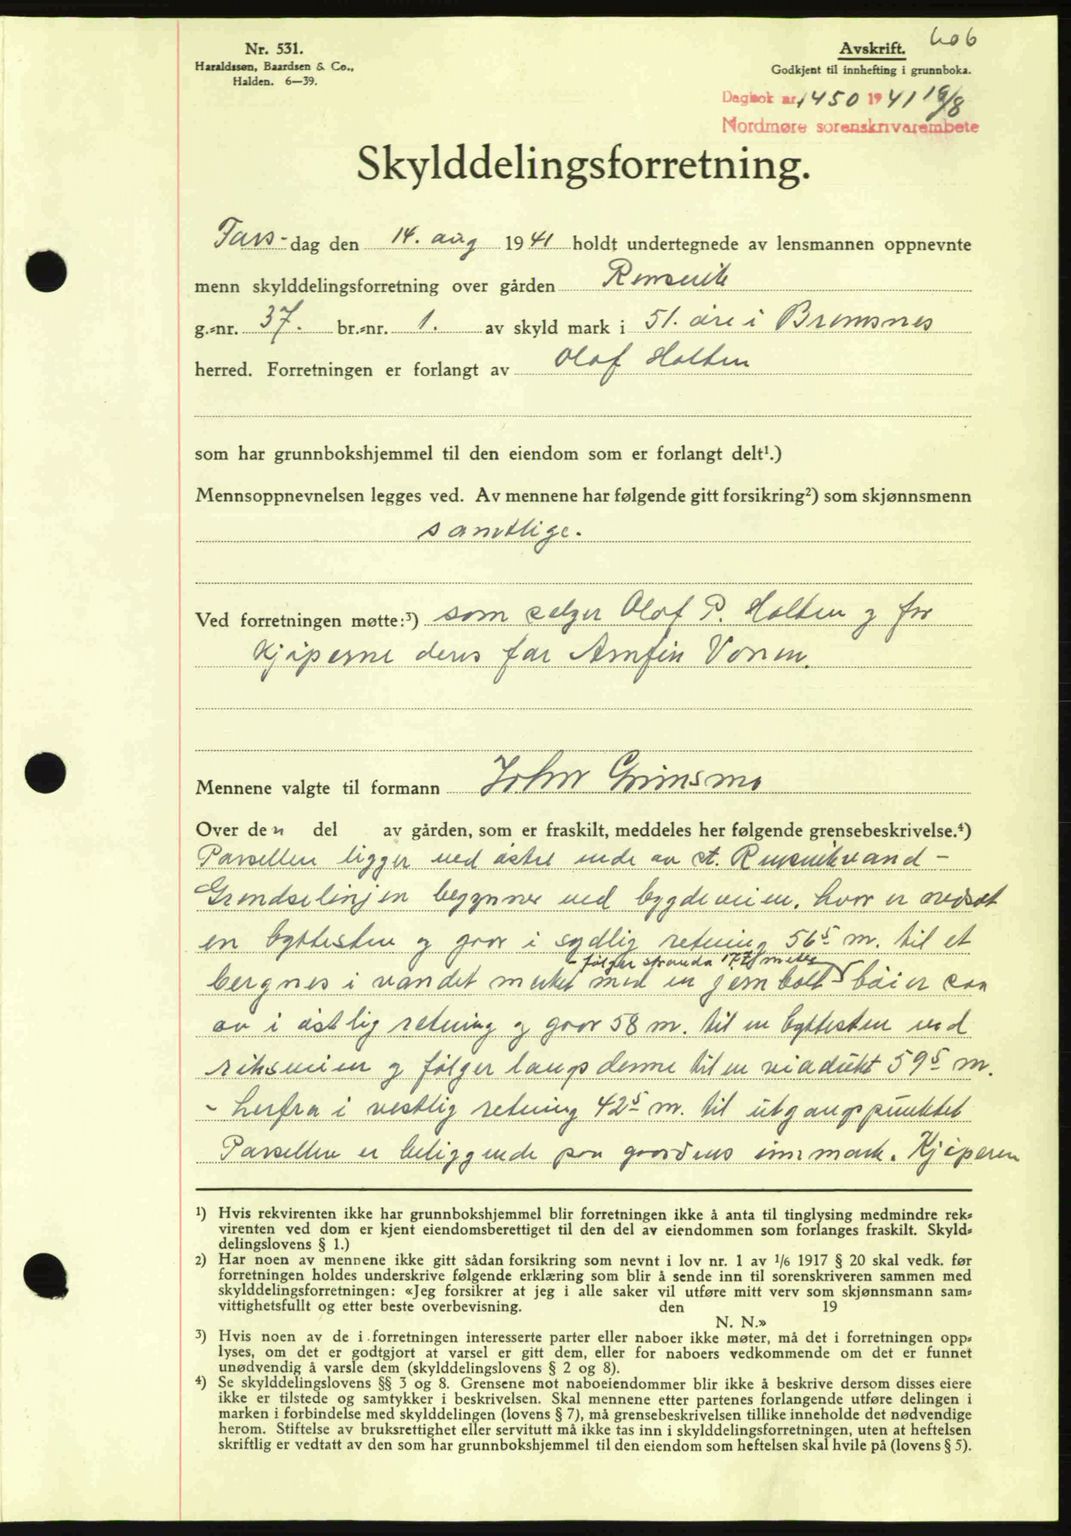 606
Nr. 531.
Haraldssøn, Baardsen & Co.,
Halden. 6—39.
Avskrift.
Godkjent til innhefting i grunnboka.
Dagbok nr. 1450 1941 19/8
Nordmøre sorenskrivarembete
Skylddelingsforretning.
Tors-dag den 14. aug 1941 holdt undertegnede av lensmannen oppnevnte
menn skylddelingsforretning over gården Remsvik
g.-nr. 37. br.-nr. 1. av skyld mark i 51. øre i Bremsnes
herred. Forretningen er forlangt av Olaf Holten
som har grunnbokshjemmel til den eiendom som er forlangt delt¹.)
Mennsoppnevnelsen legges ved. Av mennene har følgende gitt forsikring²) som skjønnsmenn
samtlige.
Ved forretningen møtte:³) som selger Olaf P. Holten og for
Kjøperne deres far Arnfin Vonen.
Mennene valgte til formann John Grimsmo
Over den del av gården, som er fraskilt, meddeles her følgende grensebeskrivelse.⁴)
Parsellen ligger ved østre ende av st. Remsvikvand -
Grendselinjen begynner ved bygdeveien, hvor er nedsat
en byttesten og gaar i sydlig retning 56⁵ m. til et
- følger stranda 17,7 meter
bergnes i vandet merket med en jernbolt - bøier saa
av i østlig retning og gaar 58 m. til en byttesten ved
riksveien og følger langs denne til en viadukt 59⁵ m.
- herfra i vestlig retning 42⁵ m. til utgangspunktet
Parsellen er beliggende paa gaardens innmark. Kjøperen
¹) Hvis rekvirenten ikke har grunnbokshjemmel blir forretningen ikke å anta til tinglysing medmindre rek-
virenten ved dom er kjent eiendomsberettiget til den del av eiendommen som forlanges fraskilt. Skyld-
delingslovens § 1.)
²) Har noen av mennene ikke gitt sådan forsikring som nevnt i lov nr. 1 av 1/6 1917 § 20 skal vedk. før
forretningen holdes underskrive følgende erklæring som blir å sende inn til sorenskriveren sammen med
skylddelingsforretningen: «Jeg forsikrer at jeg i alle saker vil utføre mitt verv som skjønnsmann sam-
vittighetsfullt og etter beste overbevisning. den 19
N. N.»
³) Hvis noen av de i forretningen interesserte parter eller naboer ikke møter, må det i forretningen opp-
lyses, om det er godtgjort at varsel er gitt dem, eller for naboers vedkommende om det er funnet
unødvendig å varsle dem (skylddelingslovens § 2 og 8).
⁴) Se skylddelingslovens §§ 3 og 8. Grensene mot naboeiendommer blir ikke å beskrive dersom disses eiere
ikke er tilstede og samtykker i beskrivelsen. Skal mennene etter partenes forlangende utføre delingen i
marken i forbindelse med skylddelingen (lovens § 7), må grensebeskrivelsen tillike inneholde det nødvendige
herom. Stiftelse av bruksrettighet eller servitutt må ikke tas inn i skylddelingsforretningen, uten at heftelsen
skriftlig er vedtatt av den som har grunnbokshjemmel til den eiendom som heftelsen skal hvile på (lovens § 5).